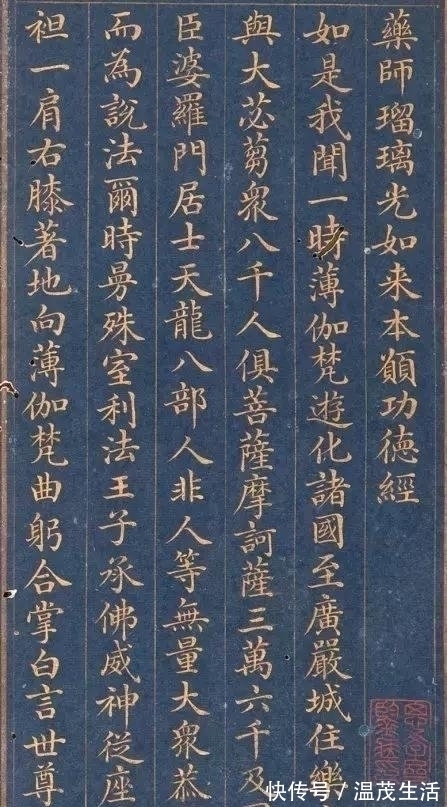 藥師瑠璃光如来本願功德經
如是我聞一時薄伽梵遊化諸國至廣嚴城住樂
與大苾蒭衆八千人俱菩薩摩訶薩三萬六千及
臣婆羅門居士天龍八部人非人等無量大衆恭
而為說法爾時曼殊室利法王子承佛威神從座
袒一肩右膝著地向薄伽梵曲躬合掌白言世尊
快传号/温茂生活